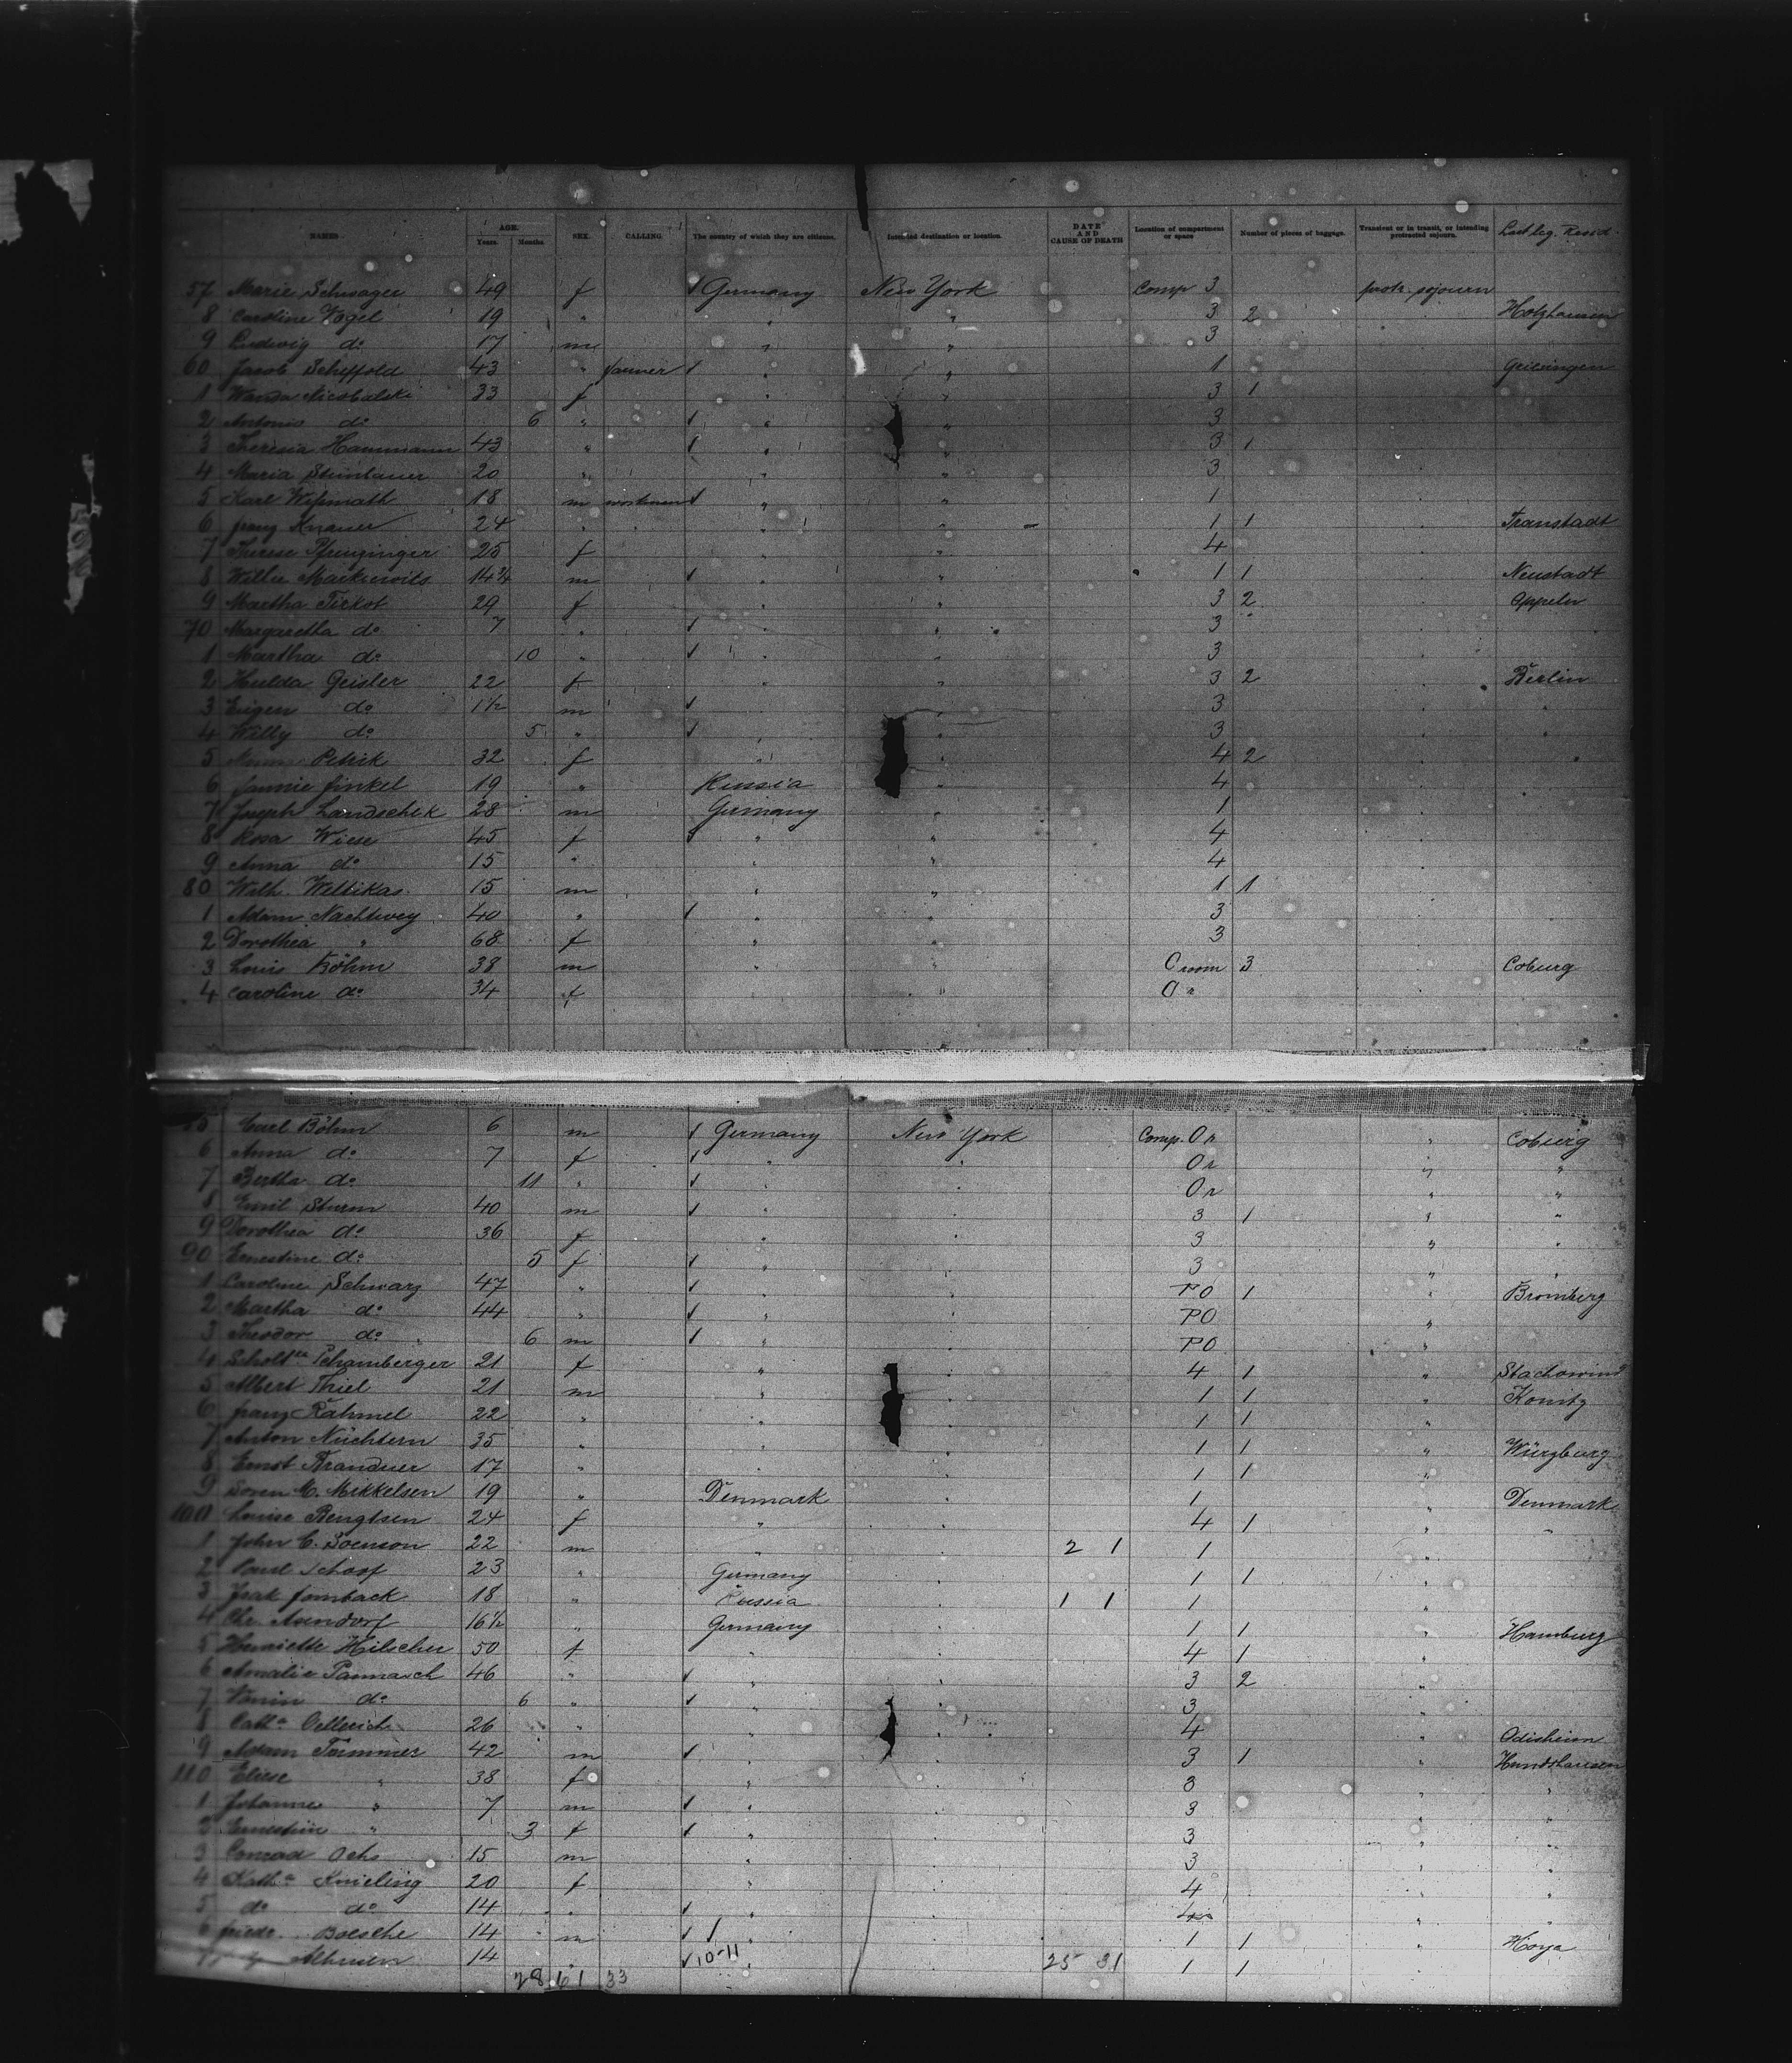 NAMES. AGE. Years. Months. SEX. CALLING. The country of which they are citizens. Intended destination or location. DATE AND CAUSE OF DEATH Location of compartment or space Number of pieces of baggage. Transient or in transit, or intending protracted sojourn. Last leg. Resid.
57 Marie Schwager 49 f Germany New York Comp 3 protr. sojourn
8 Caroline Vogel 19 " " " 3 2 Holzhausen
9 Ludwig do 17 m " " 3
60 Jacob Scheffold 43 " farmer " " 1 Geisingen
1 Wanda 33 f " " 3 1
2 Antonie do 6 " " " 3
3 Theresia Hammann 43 " " " 3 1
4 Maria 20 " " " 3
5 Karl Wißmath 18 m workman " " 1
6 Franz Knauer 24 " " " 1 1
7 Therese 25 f " " 4
8 14 3/4 m " " 1 1 Neustadt
9 Martha Tickot 29 f " " 3 2 Oppeln
70 Margaretha do 7 " " " 3
1 Martha do 10 " " " 3
2 Hulda Geisler 22 f " " 3 2 Berlin
3 Eugen do 1 1/2 m " " 3 "
4 Willy do 5 " " " 3 "
5 Petrik 32 f " " 4 2 "
6 Fannie Finkel 19 " Russia " 4
7 Joseph Landschek 28 m Germany " 1
8 Rosa Wiese 45 f " " 4
9 Anna do 15 " " " 4
80 Wilh. Wittikas 15 m " " 1 1
1 Adam Nachtwey 40 " " " 3
2 Dorothea " 68 f " " 3
3 Louis Böhm 38 m " " O room 3 Coburg
4 Caroline do 34 f " " O "
85 Carl Böhm 6 m Germany New York Comp. O r " Coburg
6 Anna do 7 f " " O r " "
7 Bertha do 11 " " " O r " "
8 Emil Sturm 40 m " " 3 1 " "
9 Dorothea do 36 f " " 3 " "
90 Ernestine do 5 f " " 3 " "
1 Caroline Schwarz 47 " " " PO 1 " Bromberg
2 Martha do 44 " " " PO "
3 Theodor do 6 m " " PO "
4 Schamberger 21 f " " 4 1 "
5 Albert Thiel 21 m " " 1 1 " Konitz
6 Franz Rahmel 22 " " " 1 1 "
7 Anton Nüchtern 35 " " " 1 1 " Würzburg
8 Ernst 17 " " " 1 1 "
9 Soren M. Mikkelsen 19 " Denmark " 1 " Denmark
100 Louise Bengtsen 24 f " " 4 1 " "
1 John C. 22 m " " 2 1 1 "
2 Paul Schoof 23 " Germany " 1 1 "
3 18 " Russia " 1 1 1 "
4 Chr. 16 1/2 " Germany " 1 1 " Hamburg
5 Henriette Hilscher 50 f " " 4 1 "
6 Amalie Pannasch 46 " " " 3 2 "
7 do 6 " " " 3 "
8 Cath.a 26 " " " 4 " Odisheim
9 Adam 42 m " " 3 1 " Hundshausen
110 Eliese " 38 f " " 3 " "
1 " 7 m " " 3 " "
2 " 3 f " " 3 " "
3 Conrad Ochs 15 m " " 3 " "
4 Kath.a Knieling 20 f " " 4 " "
5 do do 14 " " " 4 " "
6 Friedr. Boesche 14 m " 1 1 " Hoya
7 14 10-11 " 25 31 1 1
28 61 33